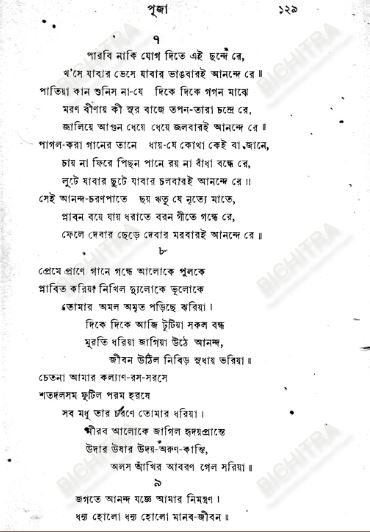 পূজা ১২৯
৭
পারবি নাকি যোগ দিতে এই ছন্দে রে,
খ'সে যাবার ভেসে যাবার ভাঙবারই আনন্দে রে॥
পাতিয়া কান শুনিস না-যে দিকে দিকে গগন মাঝে
মরণ বীণায় কী সুর বাজে তপন-তারা চন্দ্রে রে,
জালিয়ে আগুন ধেয়ে ধেয়ে জলবারই আনন্দে রে॥
পাগল-করা গানের তানে ধায়-যে কোথা কেই বা জানে,
চায় না ফিরে পিছন পানে রয় না বাঁধা বন্ধে রে,
লুটে যাবার ছুটে যাবার চলবারই আনন্দে রে॥
সেই আনন্দ-চরণপাতে ছয় ঋতু যে নৃত্যে মাতে,
প্লাবন বয়ে যায় ধরাতে বরন গীতে গন্ধে রে,
ফেলে দেবার ছেড়ে দেবার মরবারই আনন্দে রে॥
৮
প্রেমে প্রাণে গানে গন্ধে আলোকে পুলকে
প্লাবিত করিয়া নিখিল দ্যুলোকে ভূলোকে
তোমার অমল অমৃত পড়িছে ঝরিয়া।
দিকে দিকে আজি টুটিয়া সকল বন্ধ
মূরতি ধরিয়া জাগিয়া উঠে আনন্দ,
জীবন উঠিল নিবিড় সুধায় ভরিয়া॥
চেতনা আমার কল্যাণ-রস-সরসে
শতদলসম ফুটিল পরম হরষে
সব মধু তার চরণে তোমার ধরিয়া।
নীরব আলোকে জাগিল হৃদয়প্রান্তে
উদার উষার উদয়-অরুণ-কান্তি,
অলস আঁখির আবরণ গেল সরিয়া॥
৯
জগতে আনন্দ যজ্ঞে আমার নিমন্ত্রণ।
ধন্য হোলো ধন্য হোলো মানব-জীবন॥
BICHITRA
BICHITRA
BICHITRA
BICHITRA
BICHITRA
BICHITRA